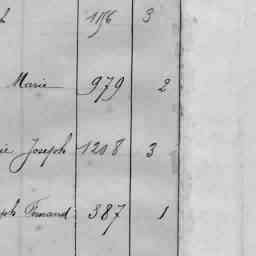 1156 3
Marie 979 2
ie Joseph 1208 3
ph Fernand 387 1